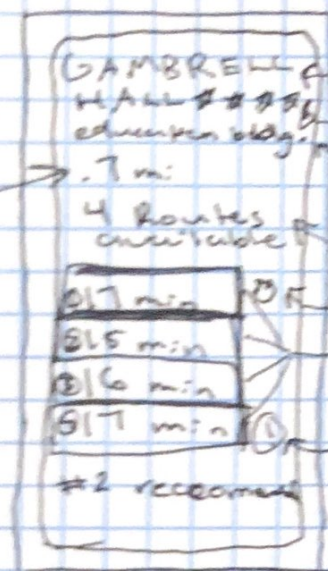 GAMBRELL
HALL ****
education bldg.
.7 mi
4 Routes
available
17 min
15 min
16 min
17 min
#2 recommend